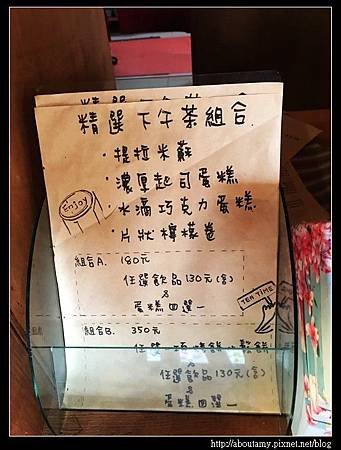 精選下午茶組合
精選下午茶組合.
・提拉米蘇
・濃厚起司蛋糕
Enjoy
・水滴巧克力蛋糕
・片狀檸檬卷
組合A. 180元
任選飲品130元(含)
&
蛋糕四選一
TEA TIME
組合B. 350元
任選一項烤餅、鬆餅
&
任選飲品130元(含)
&
蛋糕四選一
http://aboutamy.pixnet.net/blog